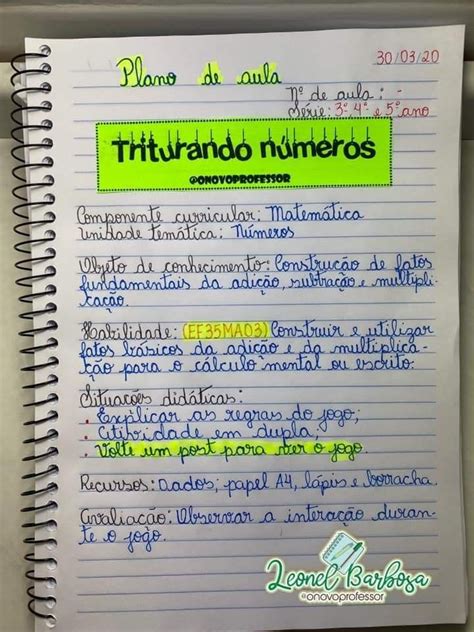 30/03/20
Plano de aula
Nº de aula: -
Série: 3º, 4º e 5º ano
Triturando números
@ONOVOPROFESSOR
Componente curricular: Matemática
Unidade temática: Números
Objeto de conhecimento: Construção de fatos
fundamentais da adição, subtração e multipli-
cação.
Habilidade: (EF35MA03) Construir e utilizar
fatos básicos da adição e da multiplica-
ção para o cálculo mental ou escrito.
Situações didáticas:
. Explicar as regras do jogo;
. Atividade em dupla;
. Volte um post para ver o jogo.
Recursos: Dados; papel A4, lápis e borracha.
Avaliação: Observar a interação duran-
te o jogo.
Leonel Barbosa
@onovoprofessor